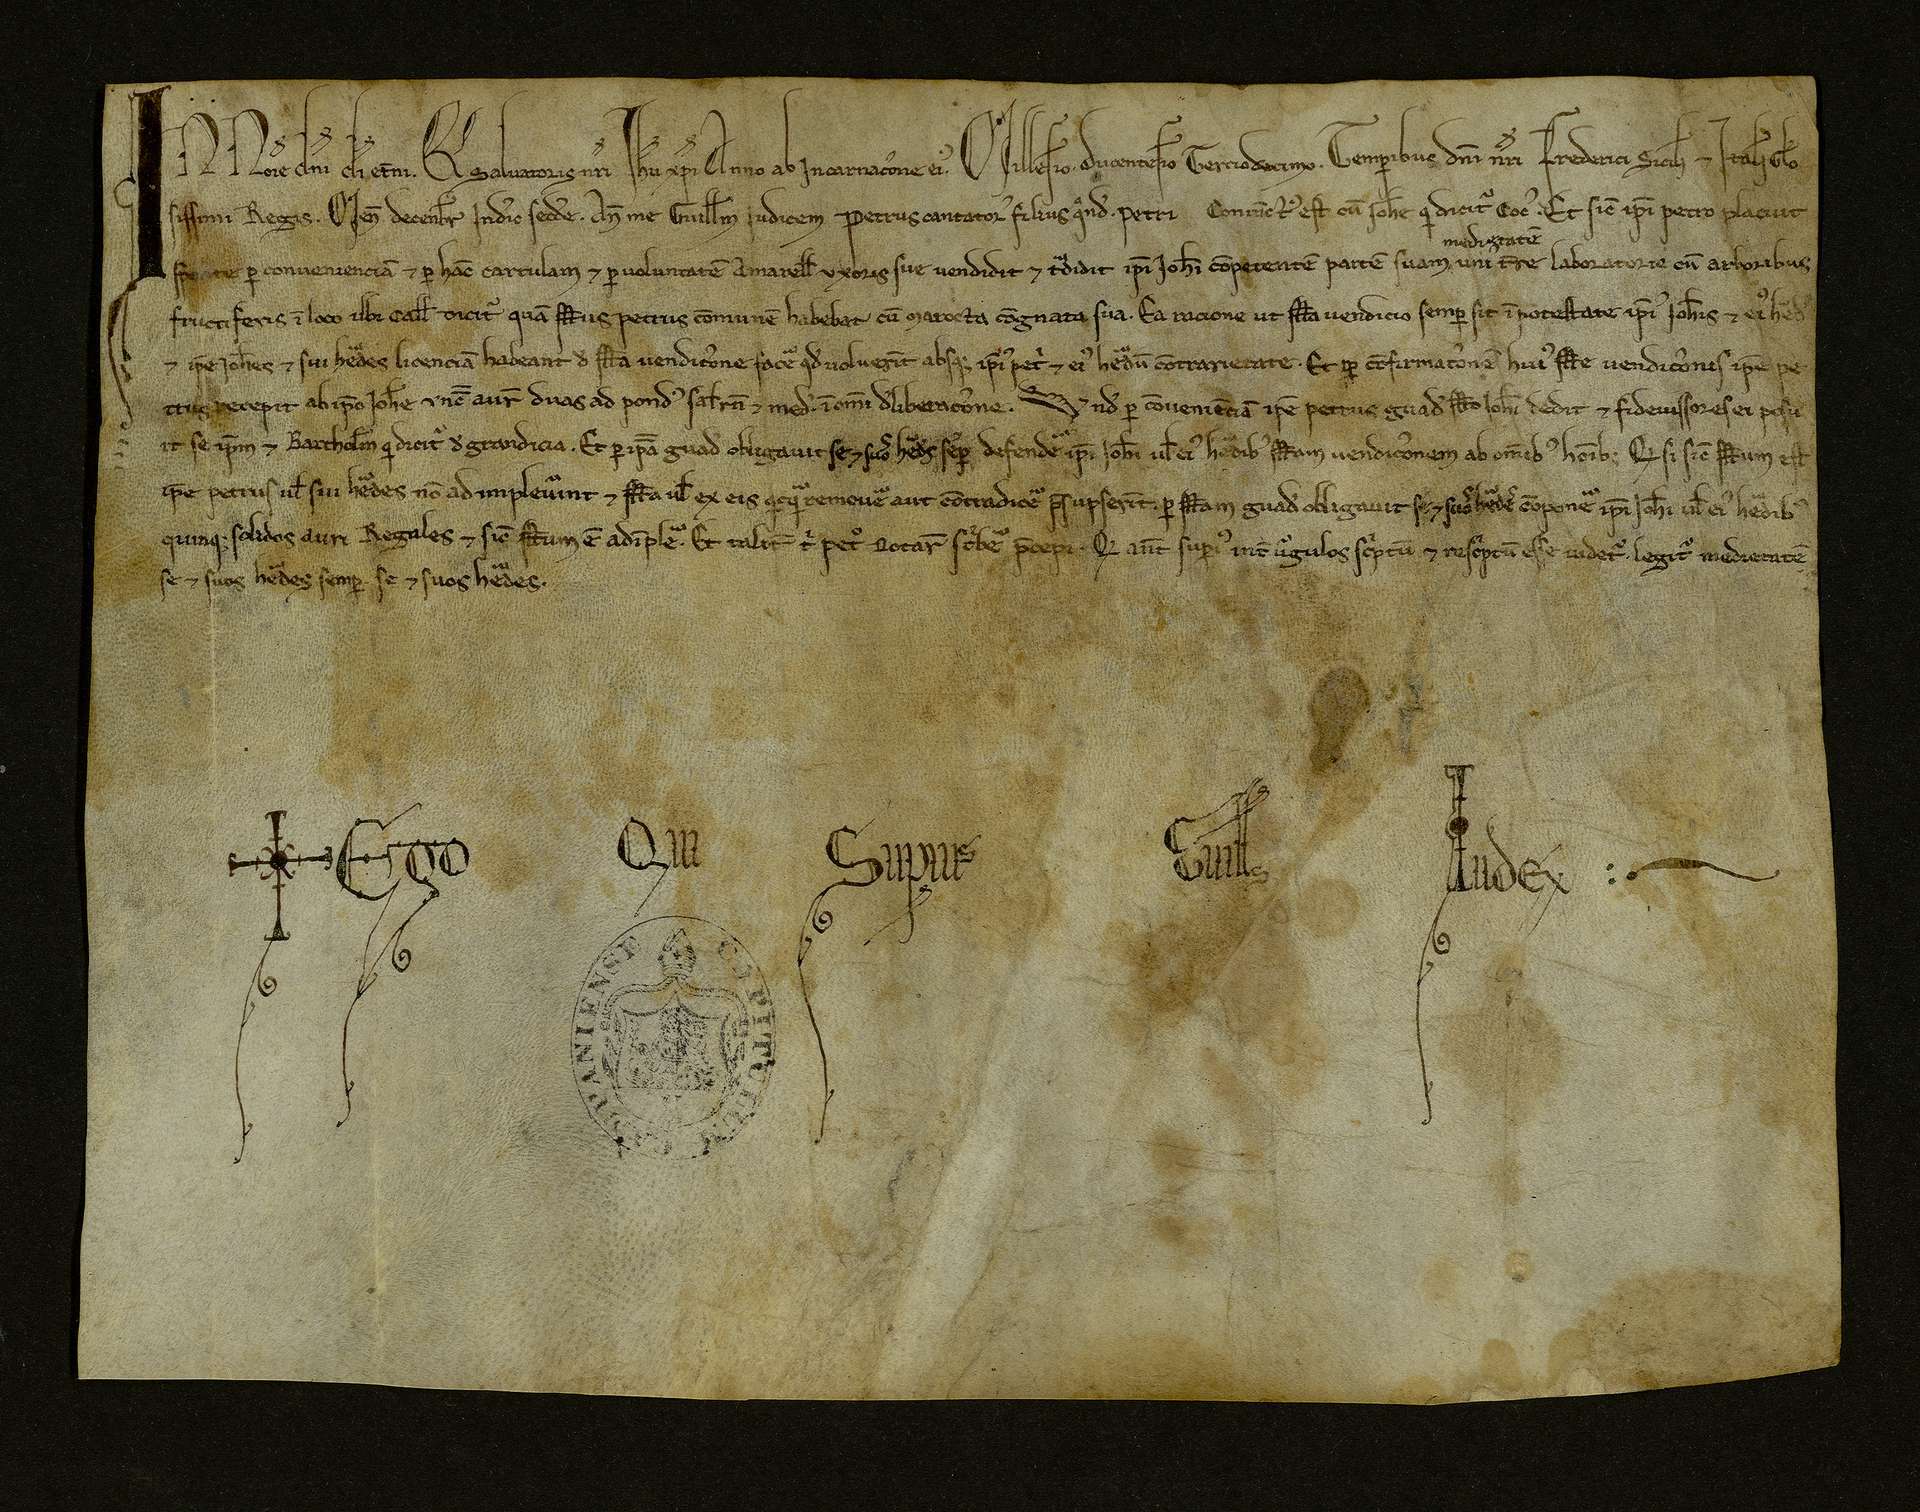 IN Noīe dn̄i dī et̄ni. Et Salvatoris nr̄i Ihū xp̄i Anno ab Incarnac̄one ei᾿. Millesīo. Ducentesīo Terciodecimo. Temporibus dn̄i nr̄i Frederici Sicił ⁊ Itał Glo
sissimi Regis. Men̄ decenbr̄ Indic̄ secd̄e. An̄ me Guilłm iudicem Petrus cantator filius qn̄d. petri Coniūct᾿ est cū Joħe q dicit᾿ Coc᾿. Et sic̄ ip̄i petro placuit
sponte p convenienciā ⁊ p hāc cartulam ⁊ p voluntatē Amarelł uxoris sue vendidit ⁊ t̄didit ip̄i Joħi cōpetentē partē suam medietatē uni᾿ t̄re laboratorie cū arboribus
fructiferis ī loco ubi Calł dicit᾿ quā sſtus petrus cōmunē habebat cū marocta cōgnata sua. Ea racione ut sſta vendicio semp sit ī potestate ip̄i᾿ Joħis ⁊ ei᾿ hed᾿
⁊ ip̄e Joħes ⁊ sui hedes licenciā habeant d sſta vendic̄one face qd voluerīt absq; ip̄i᾿ pet᾿ ⁊ ei᾿ hedū cōtrarietate. Et p cōfirmac̄onē hui᾿ sſte vendic̄onis ip̄e pe
trus recepit ab ip̄o Joħe unc̄ aur̄ duas ad pond᾿ salrn̄ ⁊ med᾿ ī omi dliberac̄one. Und p cōveniēciā ip̄e petrus guad᾿ sſto Joħi dedit ⁊ fideiussores ei posu
it se ip̄m ⁊ Bartholm̄ q dicit᾿ d grandicia. Et p ip̄ā guad᾿ obligavit se ⁊ suos hedes semp defende ip̄i Joħi vł ei᾿ hedib᾿ sſtam vendic̄onem ab omīb᾿ hoīb; Qd si sic̄ sſtum est
ip̄e petrus vł sui hedes nō adimplevint ⁊ sſta vł ex eis qcq remove aut cōtradice p̄supserīt. p sſtam guad᾿ obligavit se ⁊ suos hedes cōpone ip̄i Joħi vł ei᾿ hedib᾿
quinq; solidos auri Regales ⁊ sic̄ sſtum ē adīple. Et talit᾿ t᾿ pet᾿ Notar̄ scribe p̄cepi. Qd aūt sup᾿i᾿ int᾿ vgulos sc̄ptū ⁊ resc̄ptū esse videt᾿. legit᾿ medietatē
se ⁊ suos hedes semp. se ⁊ suos hedes.
Ego Qui Supius Guilłs Iudex
CAPITULUM